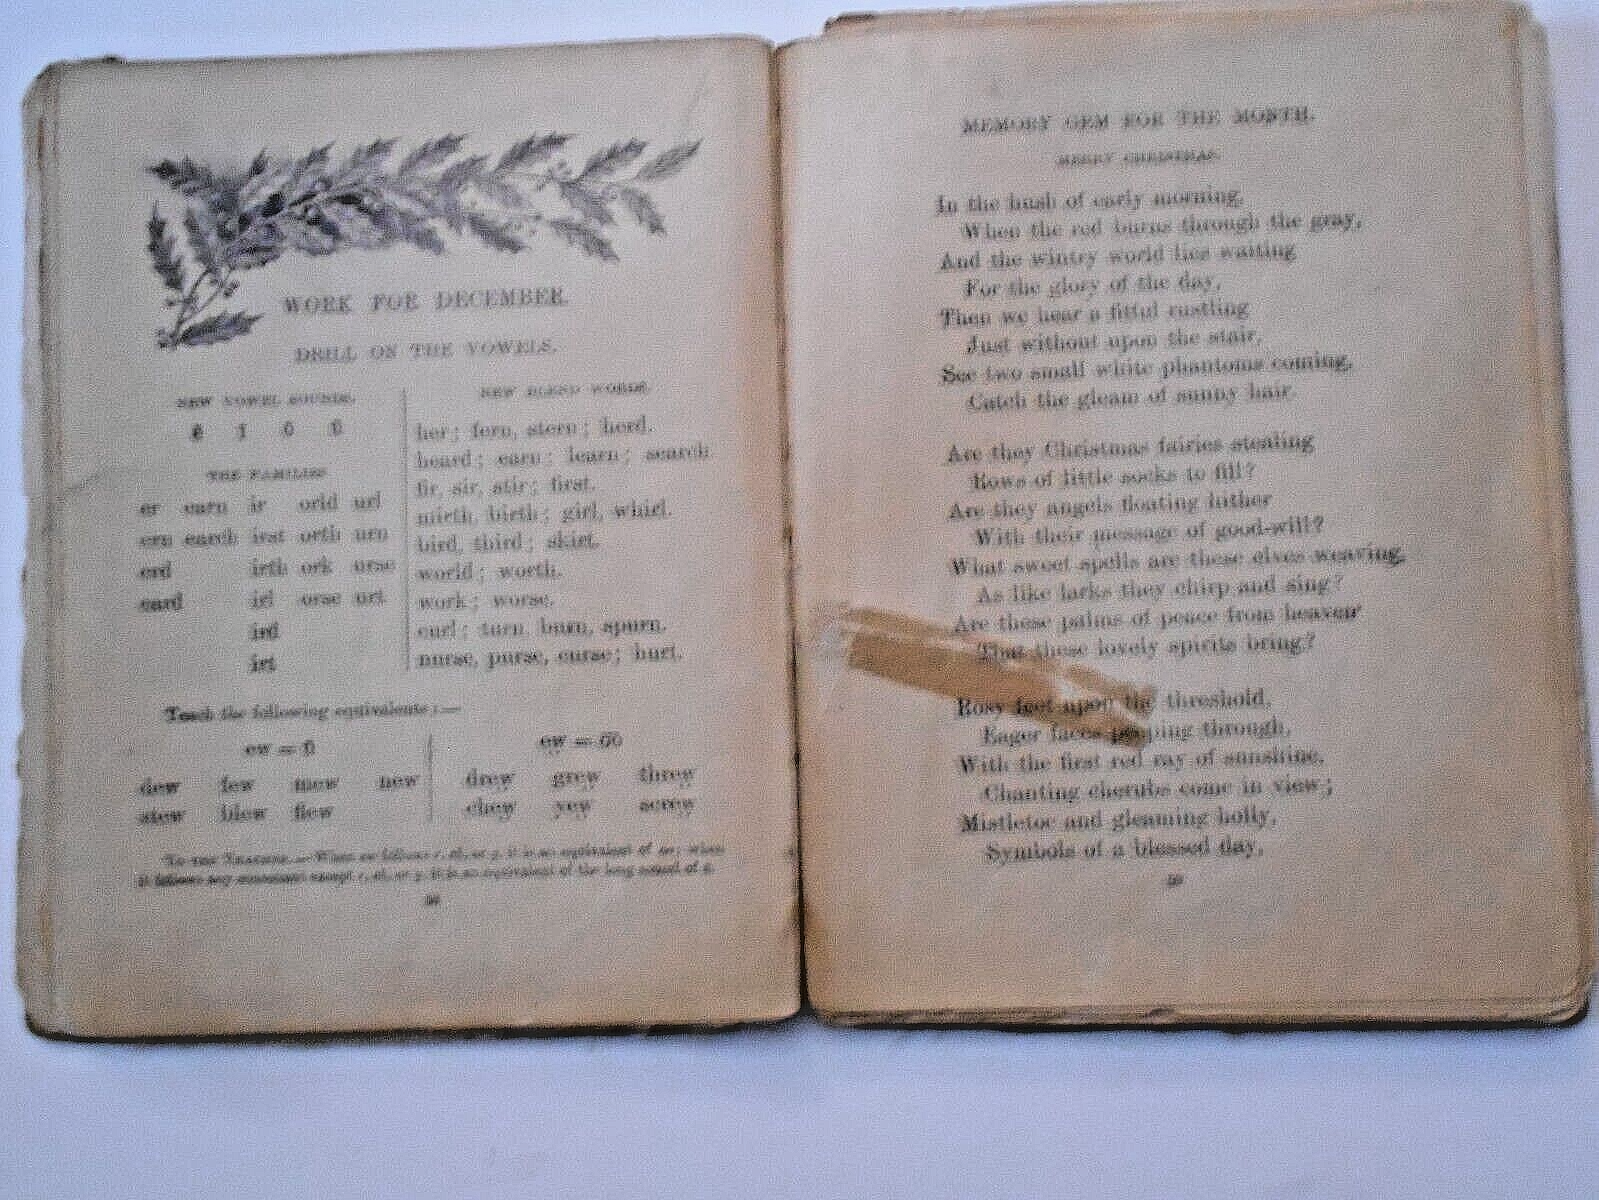 WORK FOR DECEMBER.
DRILL ON THE VOWELS.
NEW VOWEL SOUNDS.
THE FAMILIES
er earn ir orld url
ern earch irst orth urn
erd irth ork urse
eard irl orse urt
ird
irt
NEW BLEND WORDS.
her; fern, stern; herd.
heard; earn; learn; search
fir, sir, stir; first.
mirth, birth; girl, whirl.
bird, third; skirt.
world; worth.
work; worse.
curl; turn, burn, spurn.
nurse, purse, curse; hurt.
Teach the following equivalents:—
ew = ū
dew few mew new
stew blew flew
ew = o͞o
drew grew threw
chew yew screw
TO THE TEACHER.—When ew follows r, ch, or y, it is an equivalent of oo; when
it follows any consonant except r, ch, or y, it is an equivalent of the long sound of u.
MEMORY GEM FOR THE MONTH.
MERRY CHRISTMAS.
In the hush of early morning,
When the red burns through the gray,
And the wintry world lies waiting
For the glory of the day,
Then we hear a fitful rustling
Just without upon the stair,
See two small white phantoms coming,
Catch the gleam of sunny hair.
Are they Christmas fairies stealing
Rows of little socks to fill?
Are they angels floating hither
With their message of good-will?
What sweet spells are these elves weaving,
As like larks they chirp and sing?
Are these palms of peace from heaven
That these lovely spirits bring?
Rosy feet upon the threshold,
Eager faces peeping through,
With the first red ray of sunshine,
Chanting cherubs come in view;
Mistletoe and gleaming holly,
Symbols of a blessed day,